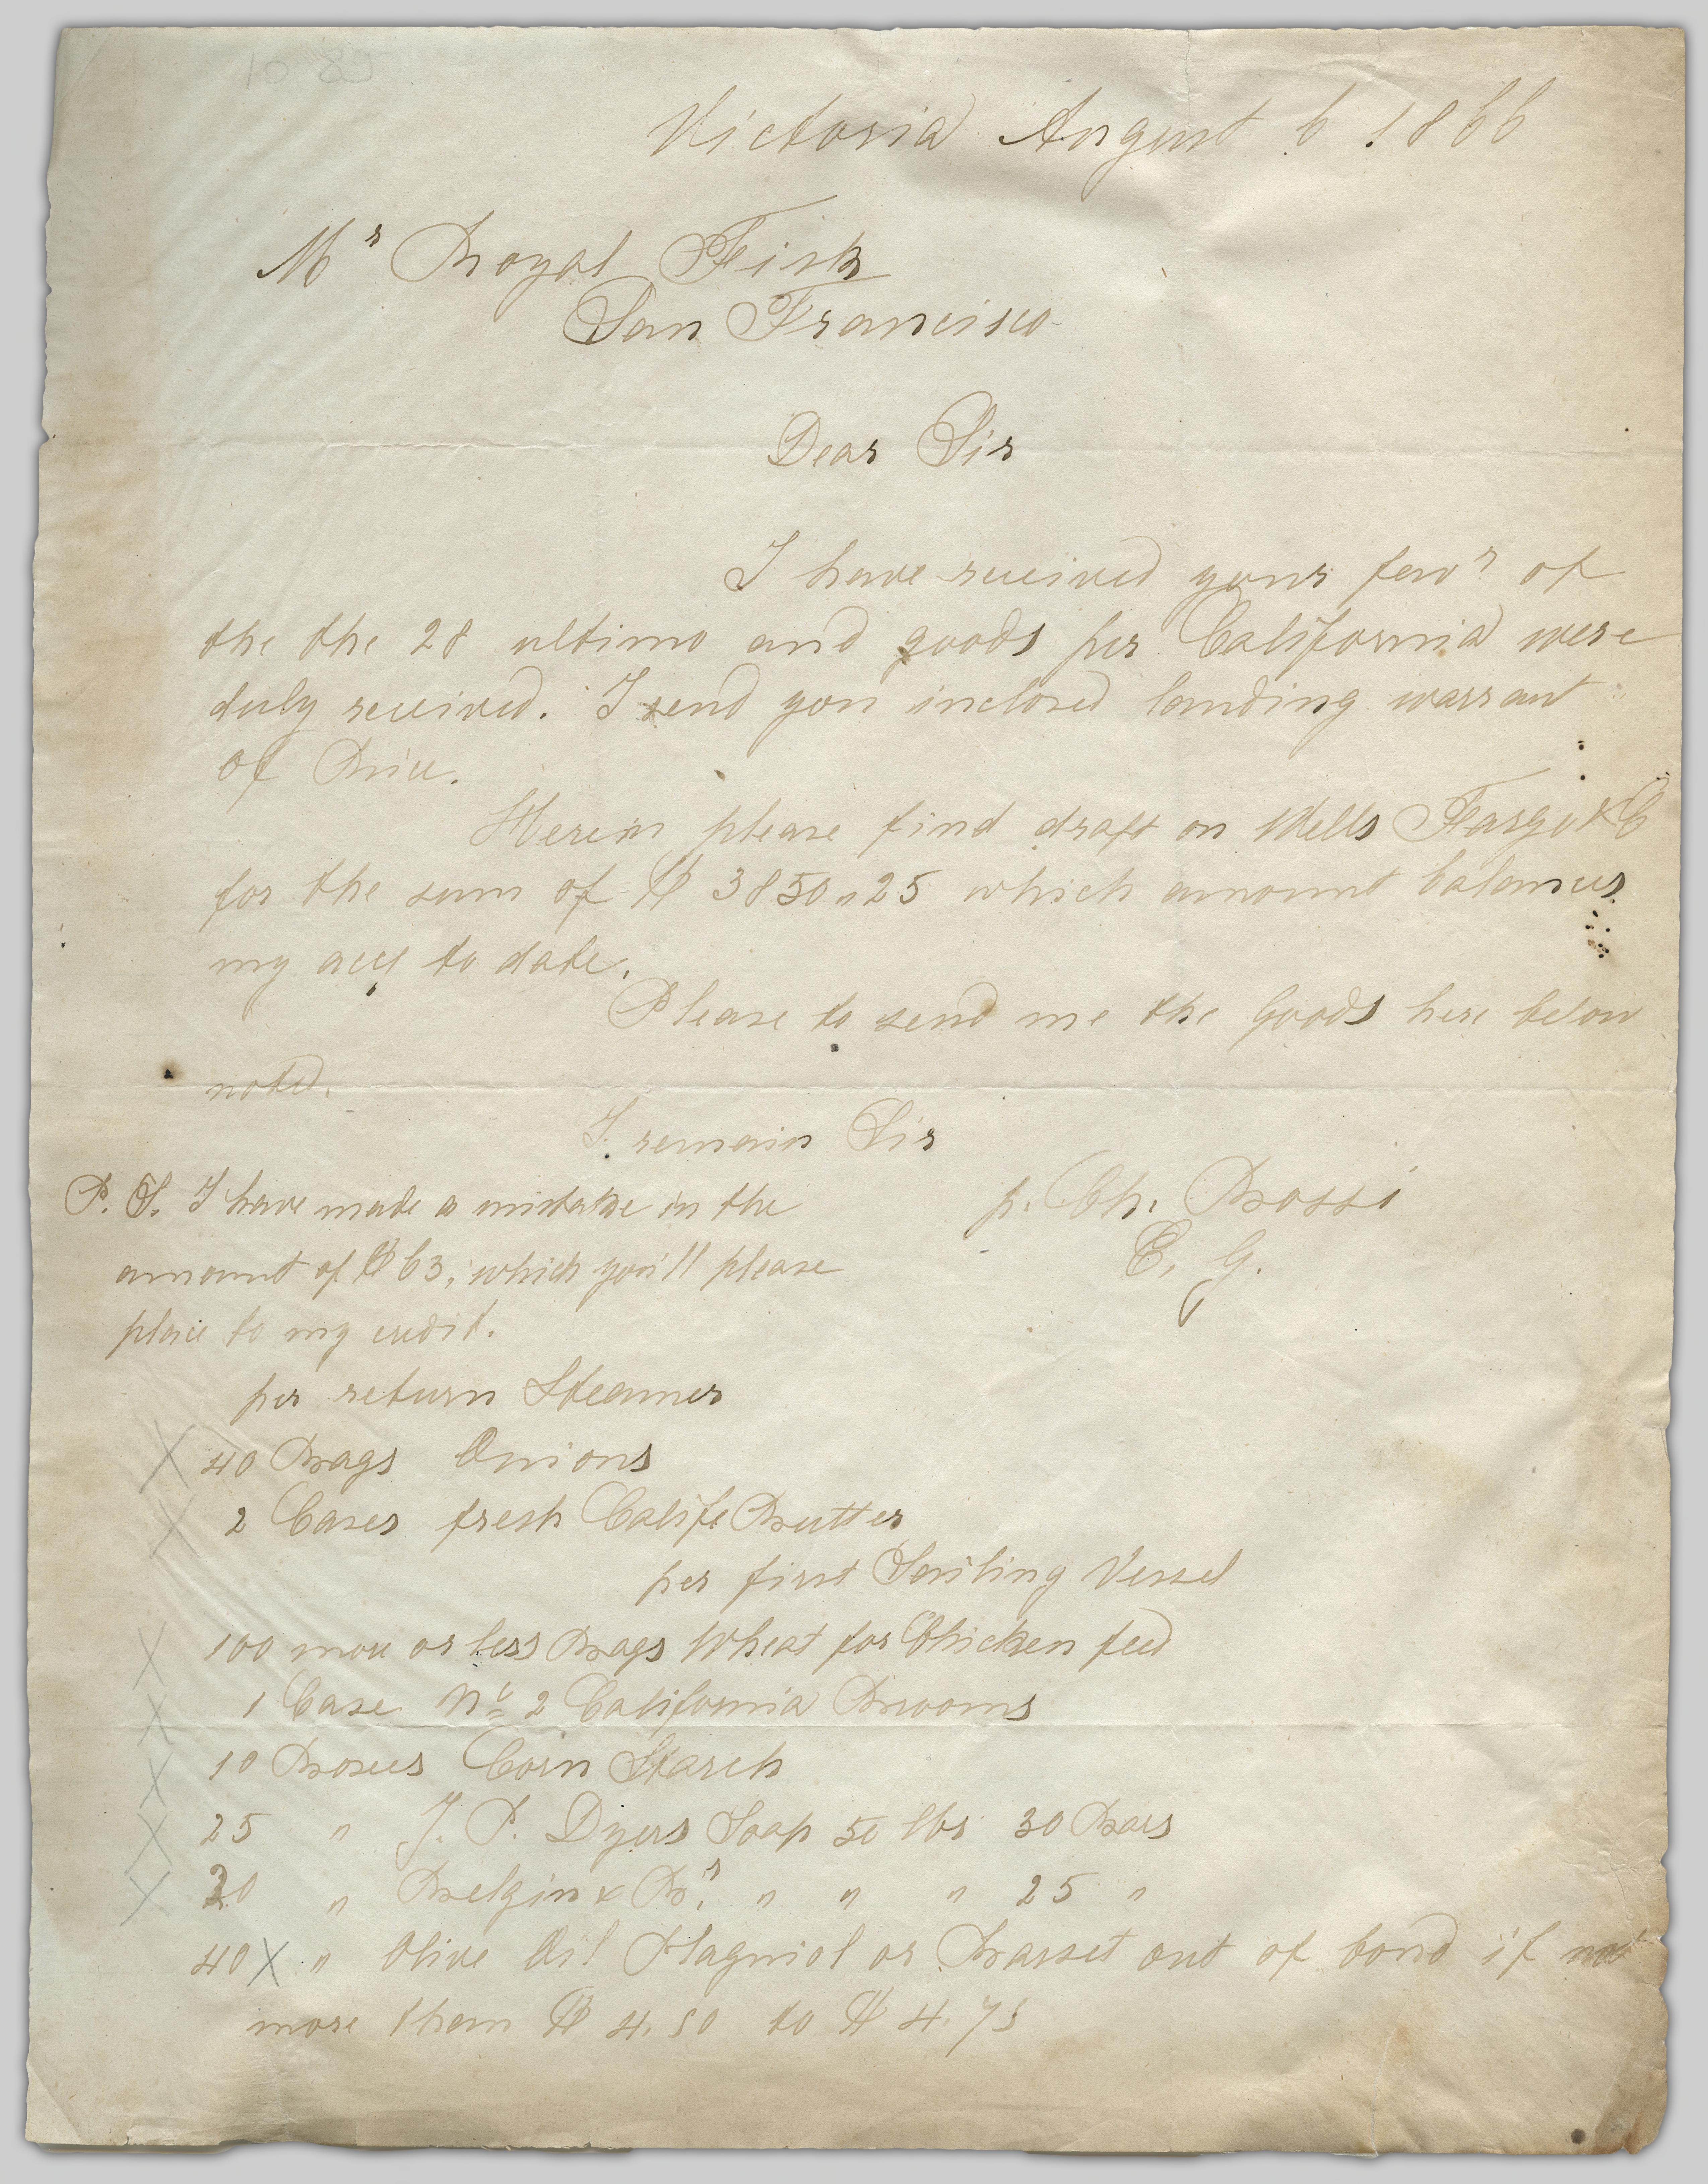 Victoria August 6 1866
Mr Royal Fisk
San Francisco
Dear Sir
I have received your favr of
the the 28 ultimo and goods per California were
duly received. I send you inclosed landing warrant
of Rice.
Herein please find draft on Wells Fargo & C
for the sum of $ 3850,,25 which amount balances
my acct to date.
Please to send me the Goods here below
noted.
I remain Sir
p. Ch. Bossi
E. G.
P. S. I have made a mistake in the
amount of $ 63, which you'll please
place to my credit.
per return Steamer
X 40 Bags Onions
X 2 Cases fresh Calif. Butter
per first Sailing Vessel
X 100 more or less Bags Wheat for Chicken feed
X 1 Case No 2 California Brooms
X 10 Boxes Corn Starch
X 25 " J. P. Dyers Soap 50 lbs 30 Bars
X 20 " & Br. " " " 25 "
40 X " Olive Oil Plagniol or Barset out of bond if not
more them $ 4.50 to $ 4.75